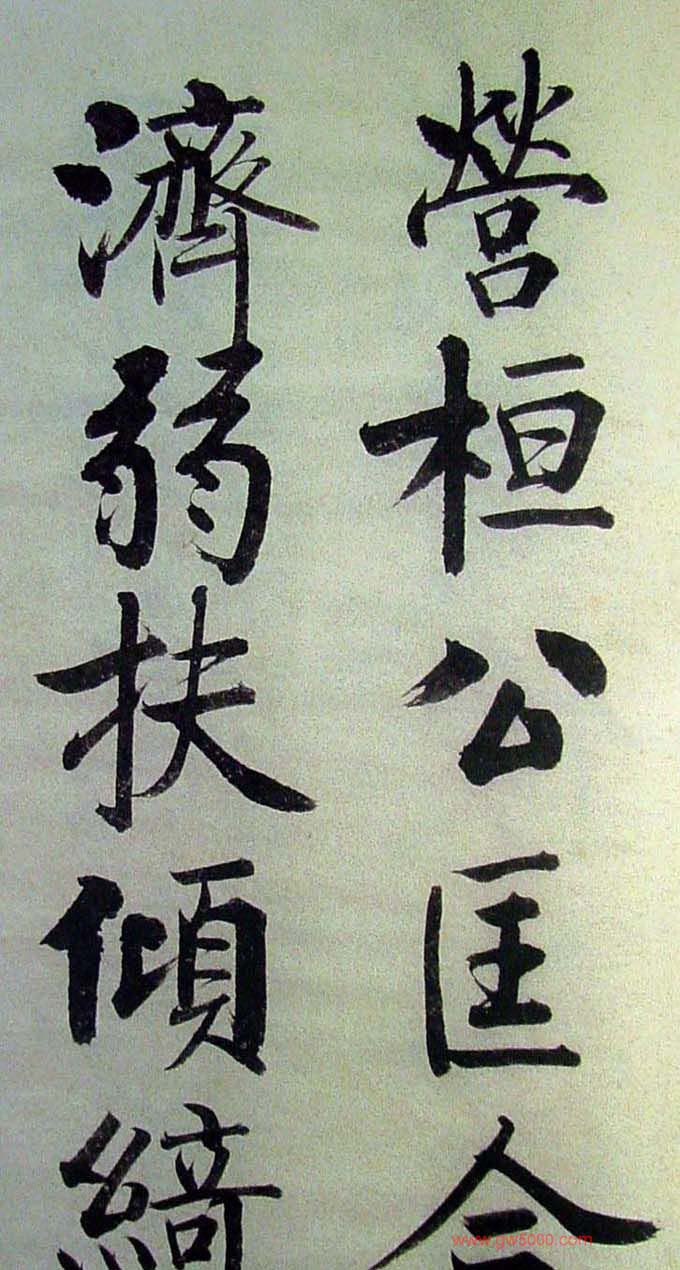 營桓公匡合
濟弱扶傾綺
www.gw5000.com